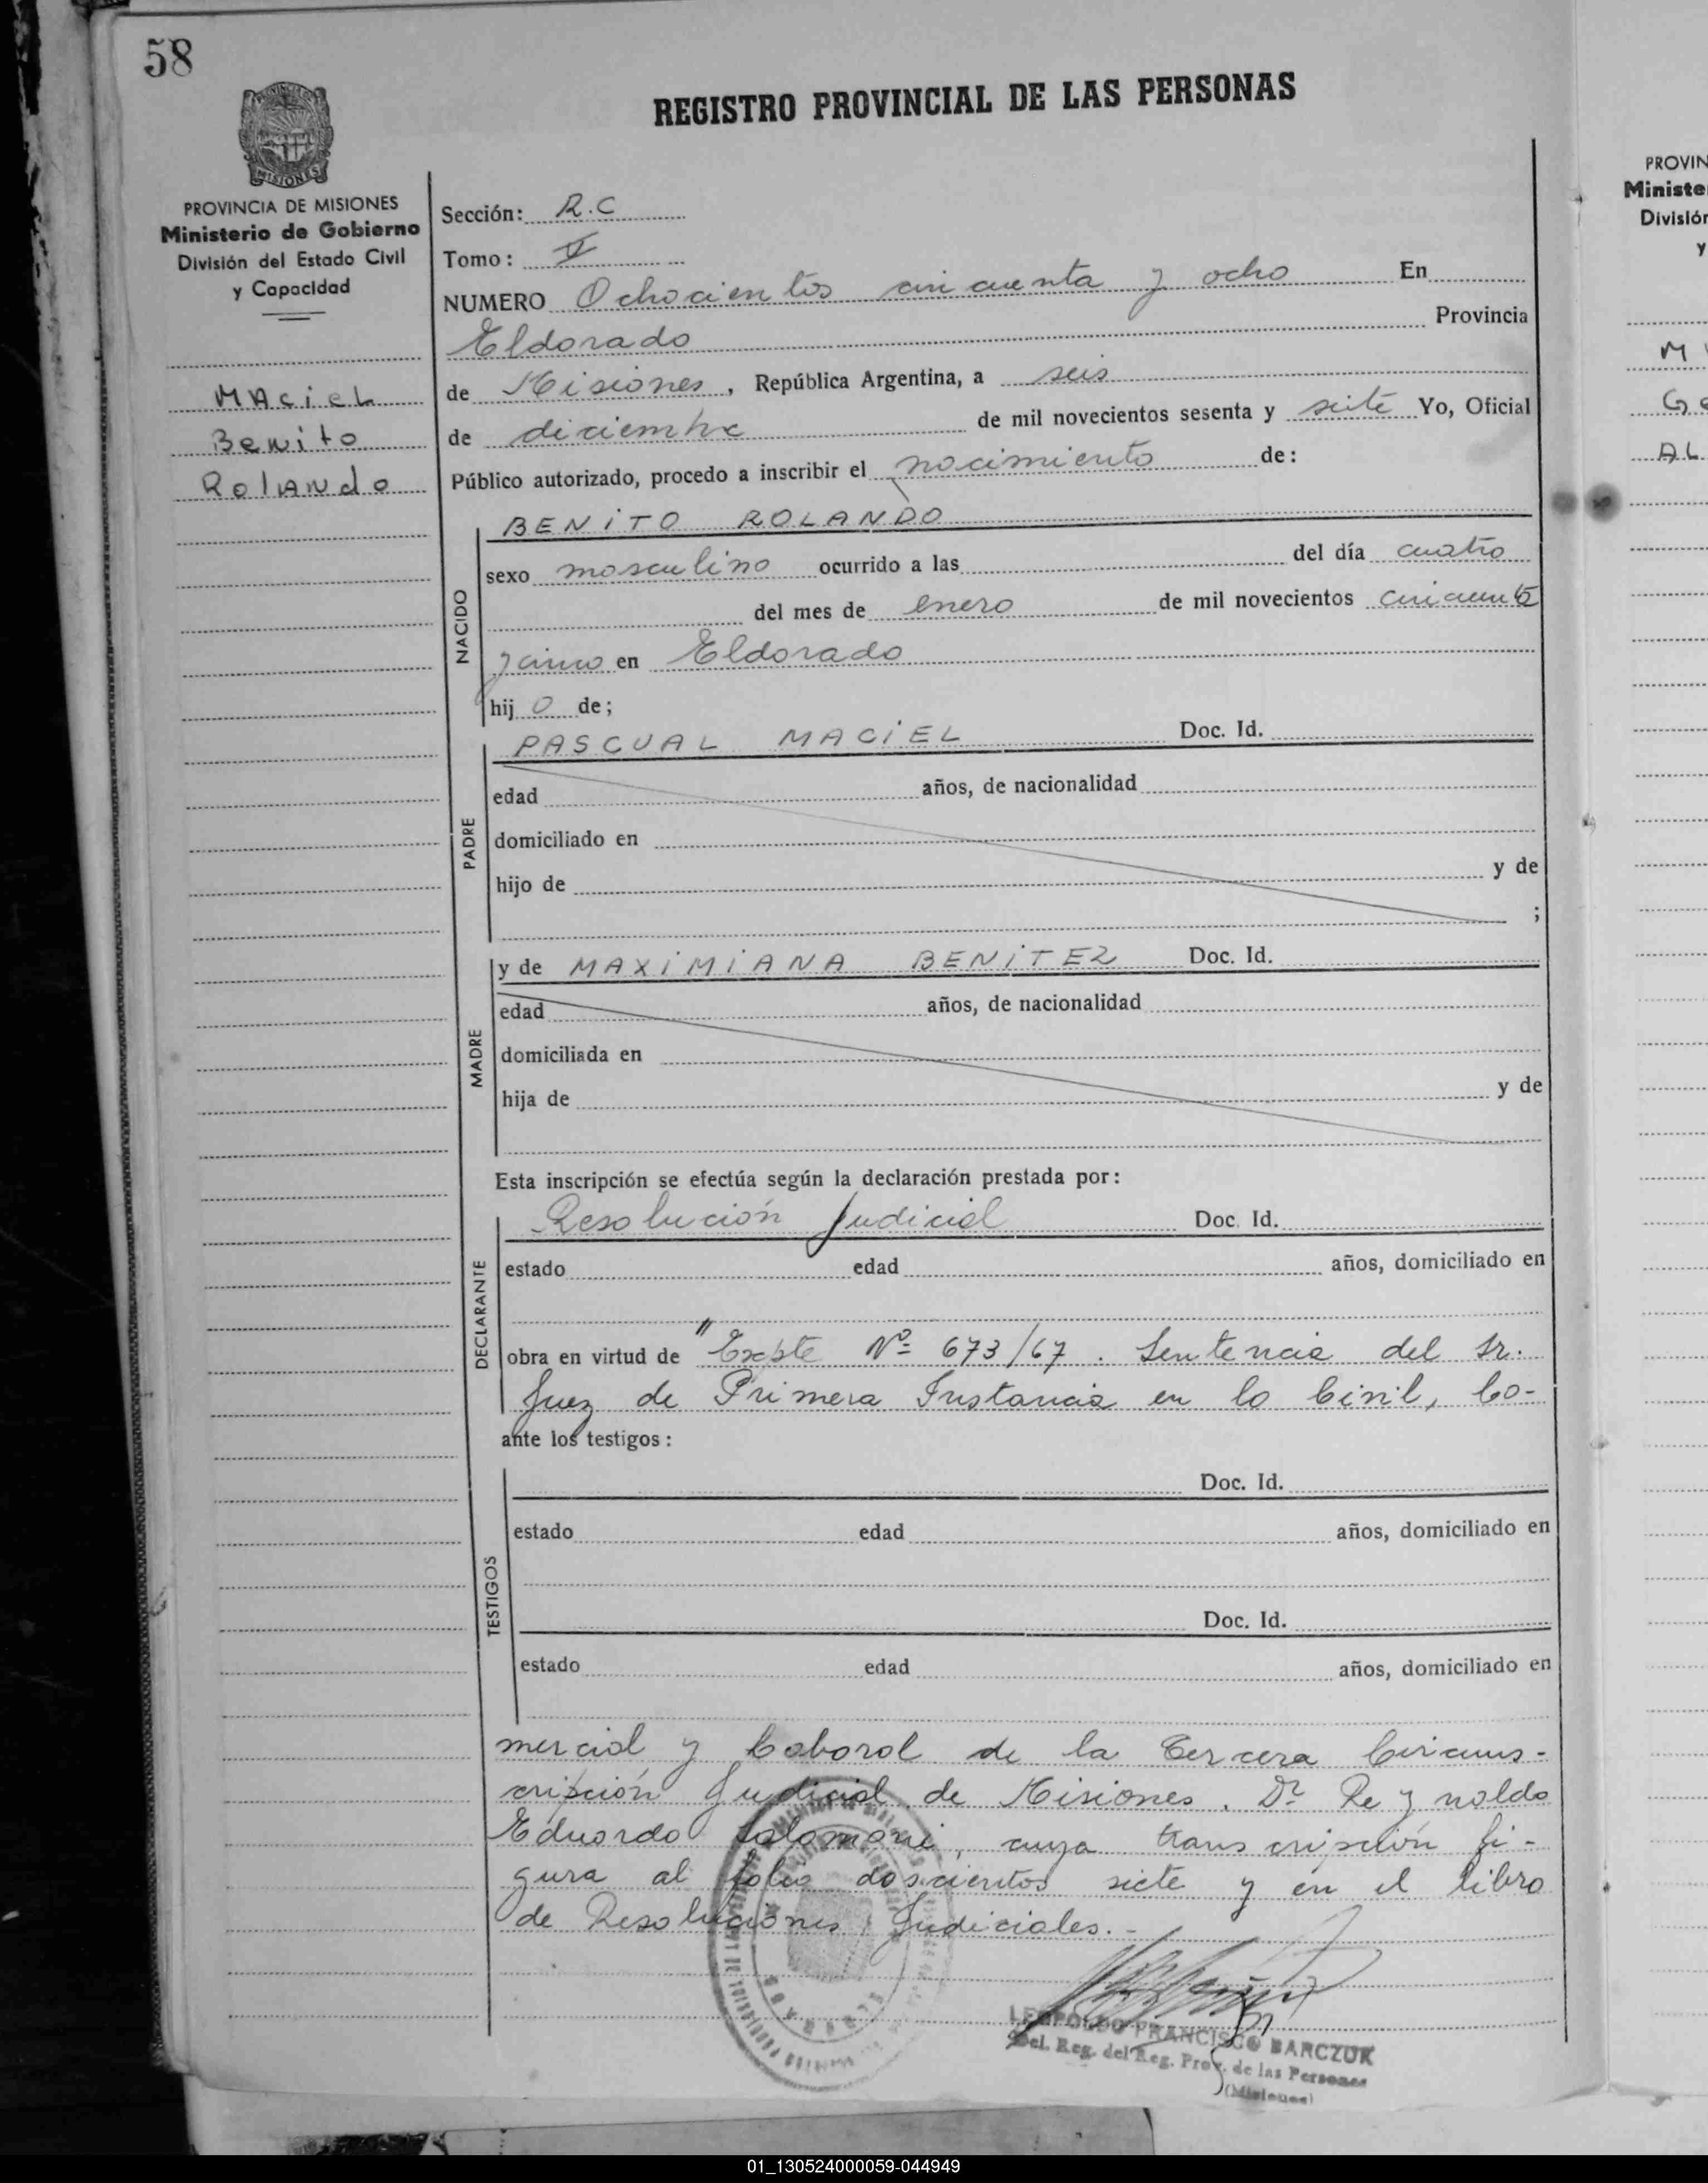 58
REGISTRO PROVINCIAL DE LAS PERSONAS
MISIONES
PROVINCIA DE MISIONES
Ministerio de Gobierno
División del Estado Civil
y Capacidad
MACiEL
BENito
ROLANdo
Sección: R.C
Tomo:
NUMERO Ochocientos cincuenta y ocho En
Eldorado Provincia
de Misiones, República Argentina, a seis
de diciembre de mil novecientos sesenta y siete Yo, Oficial
Público autorizado, procedo a inscribir el nacimiento de:
BENiTO ROLANDO
NACIDO
sexo masculino ocurrido a las del día cuatro
del mes de enero de mil novecientos cincuenta
y cinco en Eldorado
hij o de;
PASCUAL MACiEL Doc. Id.
PADRE
edad años, de nacionalidad
domiciliado en
hijo de y de
;
y de MAXiMiANA BENiTEZ Doc. Id.
MADRE
edad años, de nacionalidad
domiciliada en
hija de y de
Esta inscripción se efectúa según la declaración prestada por:
Resolución Judicial Doc. Id.
DECLARANTE
estado edad años, domiciliado en
obra en virtud de "Expte Nº 673/67. Sentencia del Sr.
Juez de Primera Instancia en lo Civil, Co-
ante los testigos:
Doc. Id.
TESTIGOS
estado edad años, domiciliado en
Doc. Id.
estado edad años, domiciliado en
mercial y Laboral de la Tercera Circuns-
cripción Judicial de Misiones. Dr. Reynaldo
Eduardo Salomoni, cuya transcripción fi-
gura al folio doscientos siete y en el libro
de Resoluciones Judiciales.-
LEOPOLDO FRANCISCO BARCZUK
Del. Reg. del Reg. Prov. de las Personas
(Misiones)
PROVIN
Ministe
División
y
M
G
AL
01_130524000059-044949